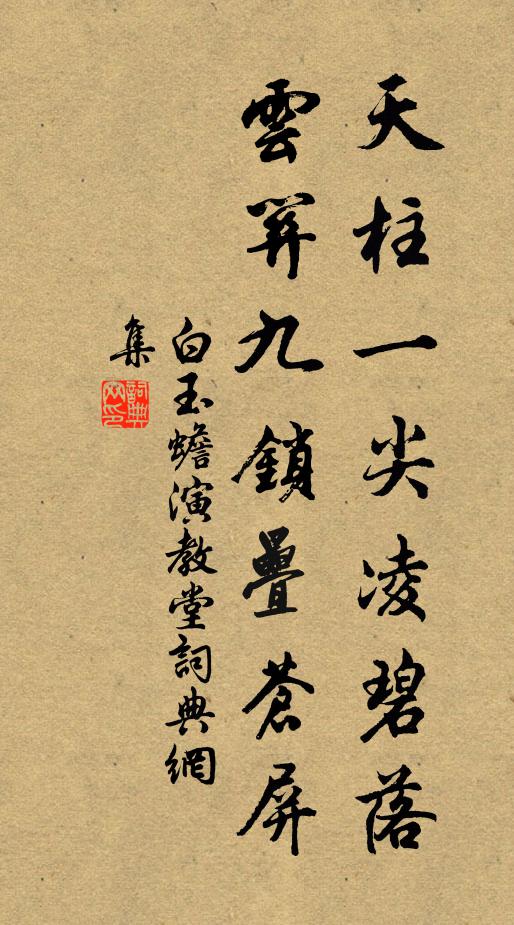 天柱一尖凌碧落
雲開九鎖疊蒼屏
白玉蟾演教堂詞典網
集
詞典网印